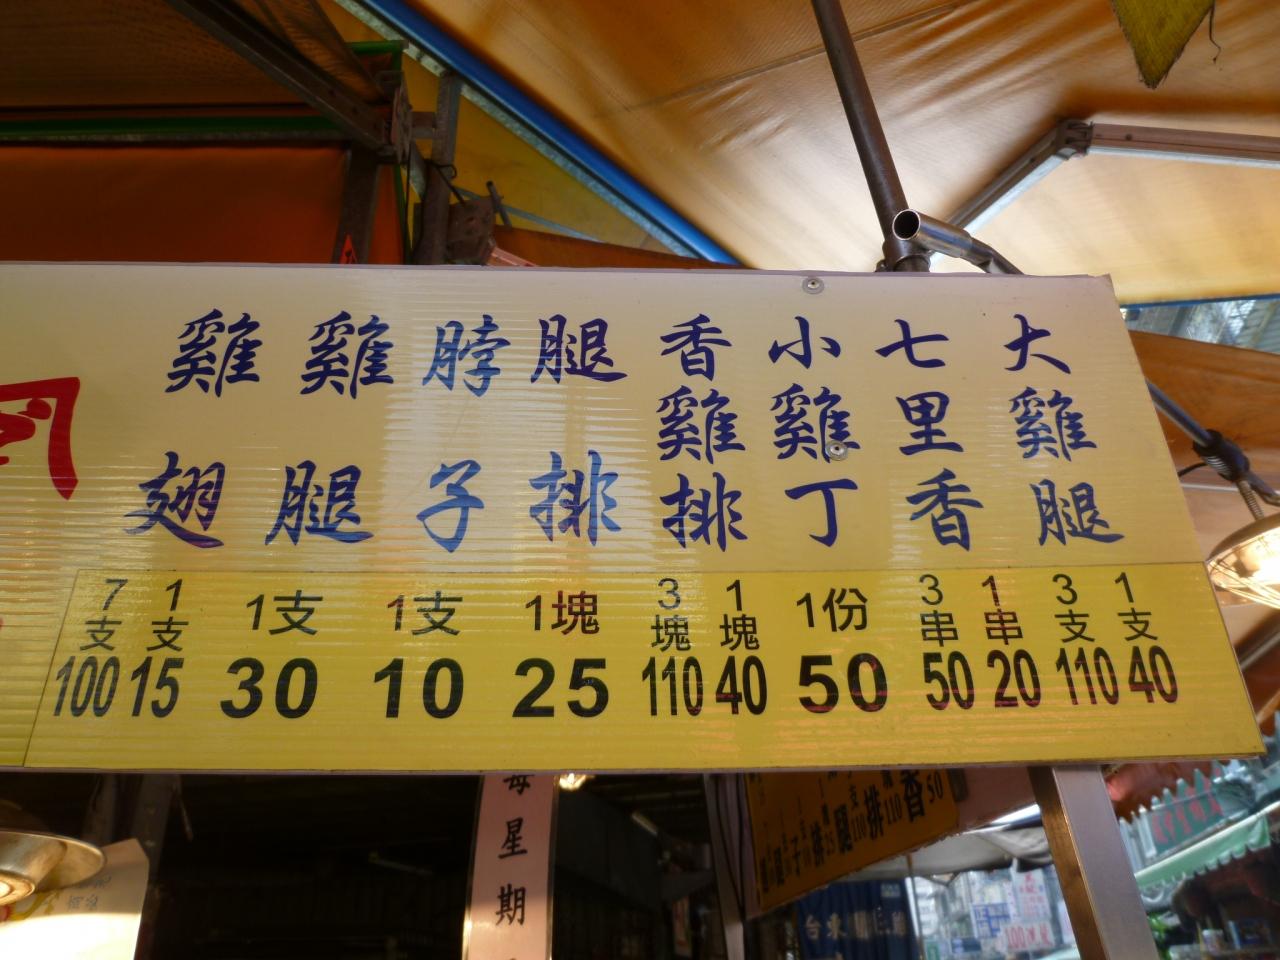 大雞腿
七里香
小雞丁
香雞排
腿排
脖子
雞腿
雞翅
7支 100
1支 15
1支 30
1支 10
1塊 25
3塊 110
1塊 40
1份 50
3串 50
1串 20
3支 110
1支 40
每星期
台東